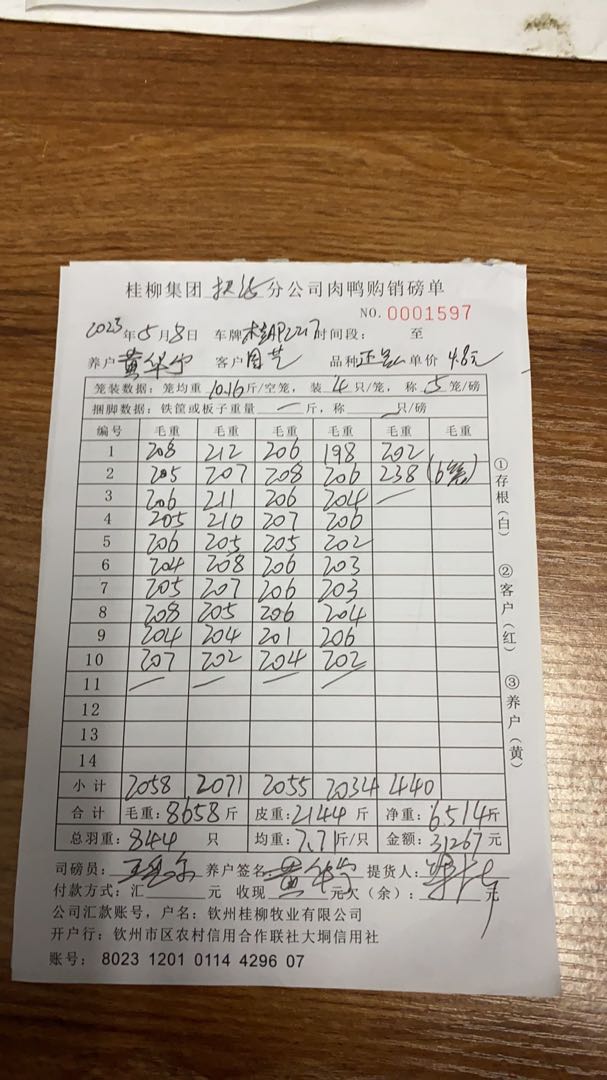 桂柳集团 分公司肉鸭购销磅单
NO.0001597
2023年5月8日 车牌桂AP2217时间段： 至
养户黄华宁 客户周芝 品种 单价 4.8元
笼装数据：笼均重10.16斤/空笼，装4只/笼，称5笼/磅
捆脚数据：铁筐或板子重量 一 斤，称 只/磅
编号 毛重 毛重 毛重 毛重 毛重 毛重
1 208 212 206 198 202
2 205 207 208 206 238 (6笼)
3 206 211 206 204 一
4 205 210 207 206
5 206 205 205 202
6 204 208 206 203
7 205 207 206 203
8 208 205 206 204
9 204 204 201 206
10 207 202 204 202
11 一 一 一 一
12
13
14
小计 2058 2071 2055 2034 440
合计 毛重:8658斤 皮重:2144斤 净重:6514斤
总羽重:844 只 均重:7.71斤/只 金额:31267元
司磅员: 养户签名:黄华宁 提货人:
付款方式：汇 元 收现 元欠（余）： 元
公司汇款账号，户名：钦州桂柳牧业有限公司
开户行：钦州市区农村信用合作联社大垌信用社
账号：8023 1201 0114 4296 07
①存根（白）
②客户（红）
③养户（黄）